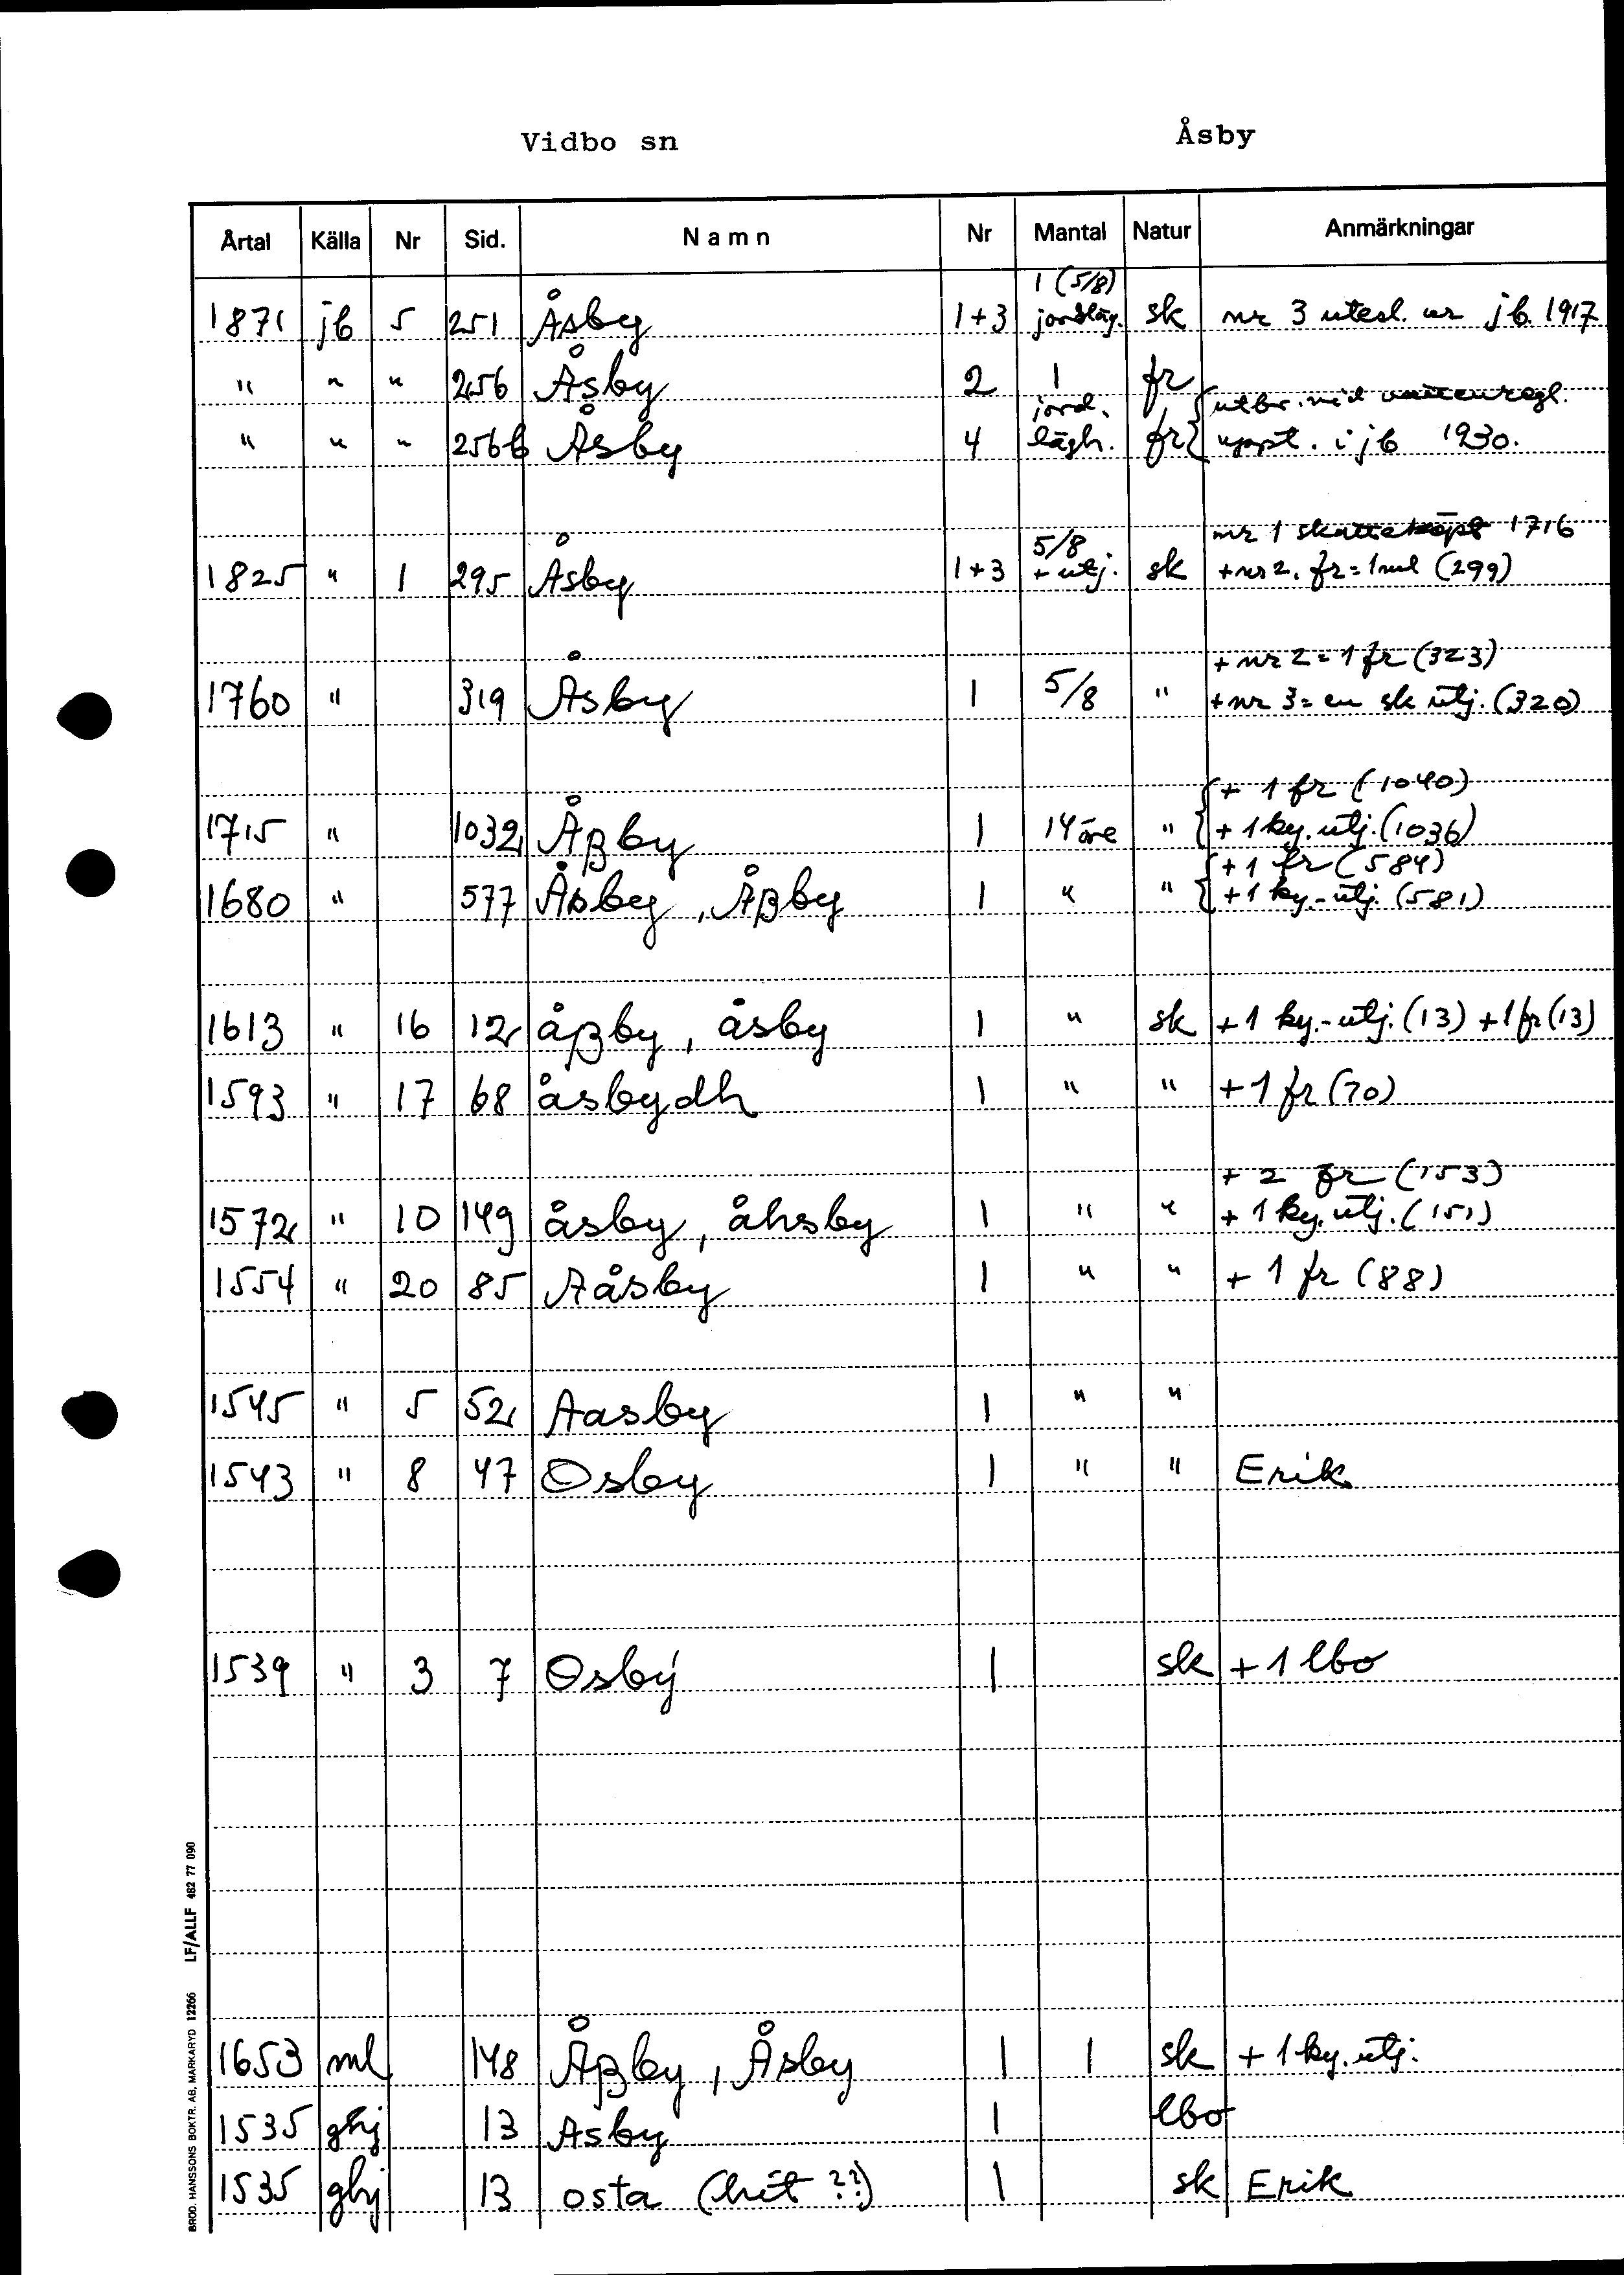 Vidbo sn Åsby
Årtal Källa Nr Sid. Namn Nr Mantal Natur Anmärkningar
1 (5/8)
1871 jb 5 251 Åsby 1+3 jordläg. sk nr 3 utesl. ur jb. 1917
" " " 256 Åsby 2 1 fr
jord. utbr. vid vattenregl.
" " " 256b Åsby 4 lägh. fr uppt. i jb 1930.
5/8 nr 1 skatteköpt 1716
1825 " 1 295 Åsby 1+3 + utj. sk + nr 2. fr = 1 ml (299)
+ nr 2 = 1 fr (323)
1760 " 319 Åsby 1 5/8 " + nr 3 = en sk utj. (320)
+ 1 fr (1040)
1715 " 1032 Åßby 1 14 öre " + 1 ky. utj. (1036)
+ 1 fr (584)
1680 " 577 Åsby, Åßby 1 " " + 1 ky.-utj. (581)
1613 " 16 12 åßby, åsby 1 " sk + 1 ky.-utj. (13) + 1 fr (13)
1593 " 17 68 åsbydh 1 " " + 1 fr (70)
+ 2 fr (153)
1572 " 10 149 åsby, åhsby 1 " " + 1 ky. utj. (151)
1554 " 20 85 Aåsby 1 " " + 1 fr (88)
1545 " 5 52 Aasby 1 " "
1543 " 8 47 Osby 1 " " Erik
1539 " 3 7 Osbý 1 sk + 1 lbo
1653 ml 148 Åßby, Åsby 1 1 sk + 1 ky. utj.
1535 ghj 13 Asby 1 lbo
1535 ghj 13 osta (hit ??) 1 sk Erik
BROD. HANSSONS BOKTR. AB, MARKARYD 12266 LF/ALLF 482 77 090